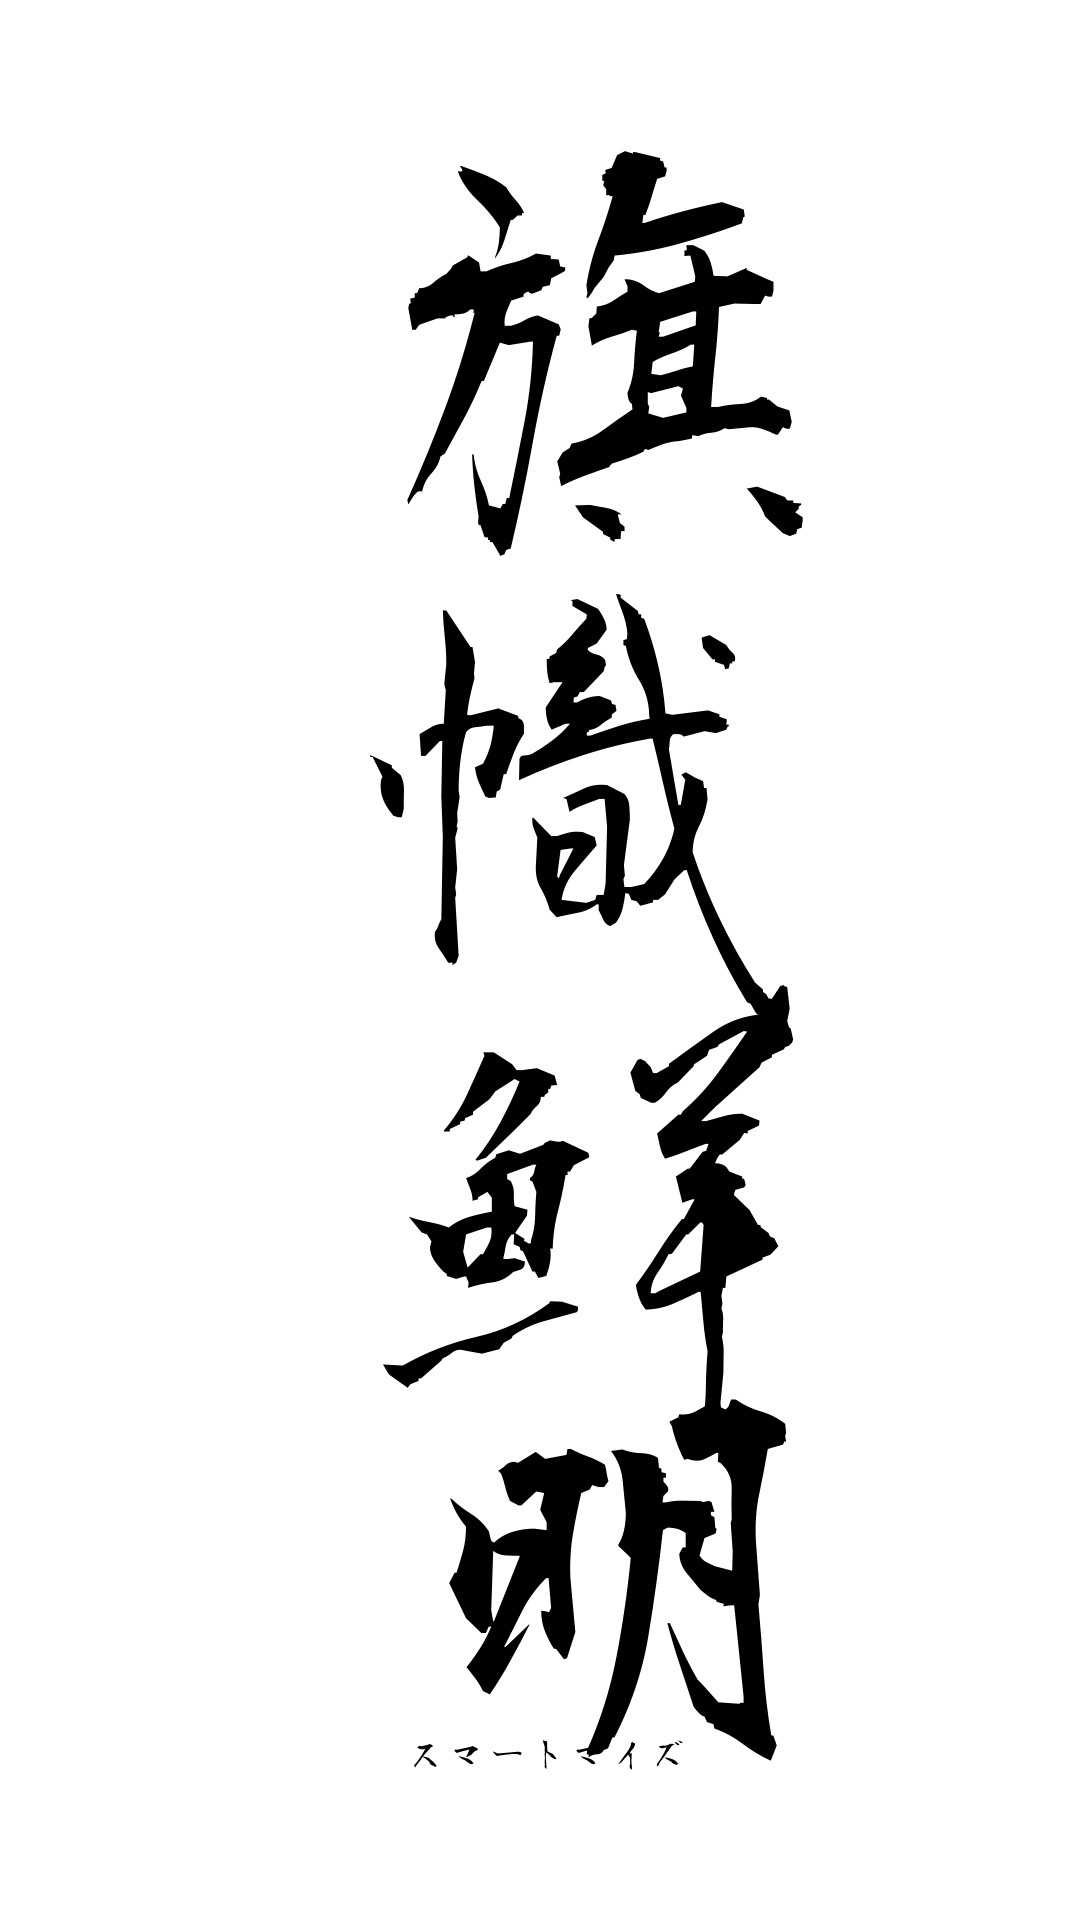 旗幟鮮明
スマートマイズ